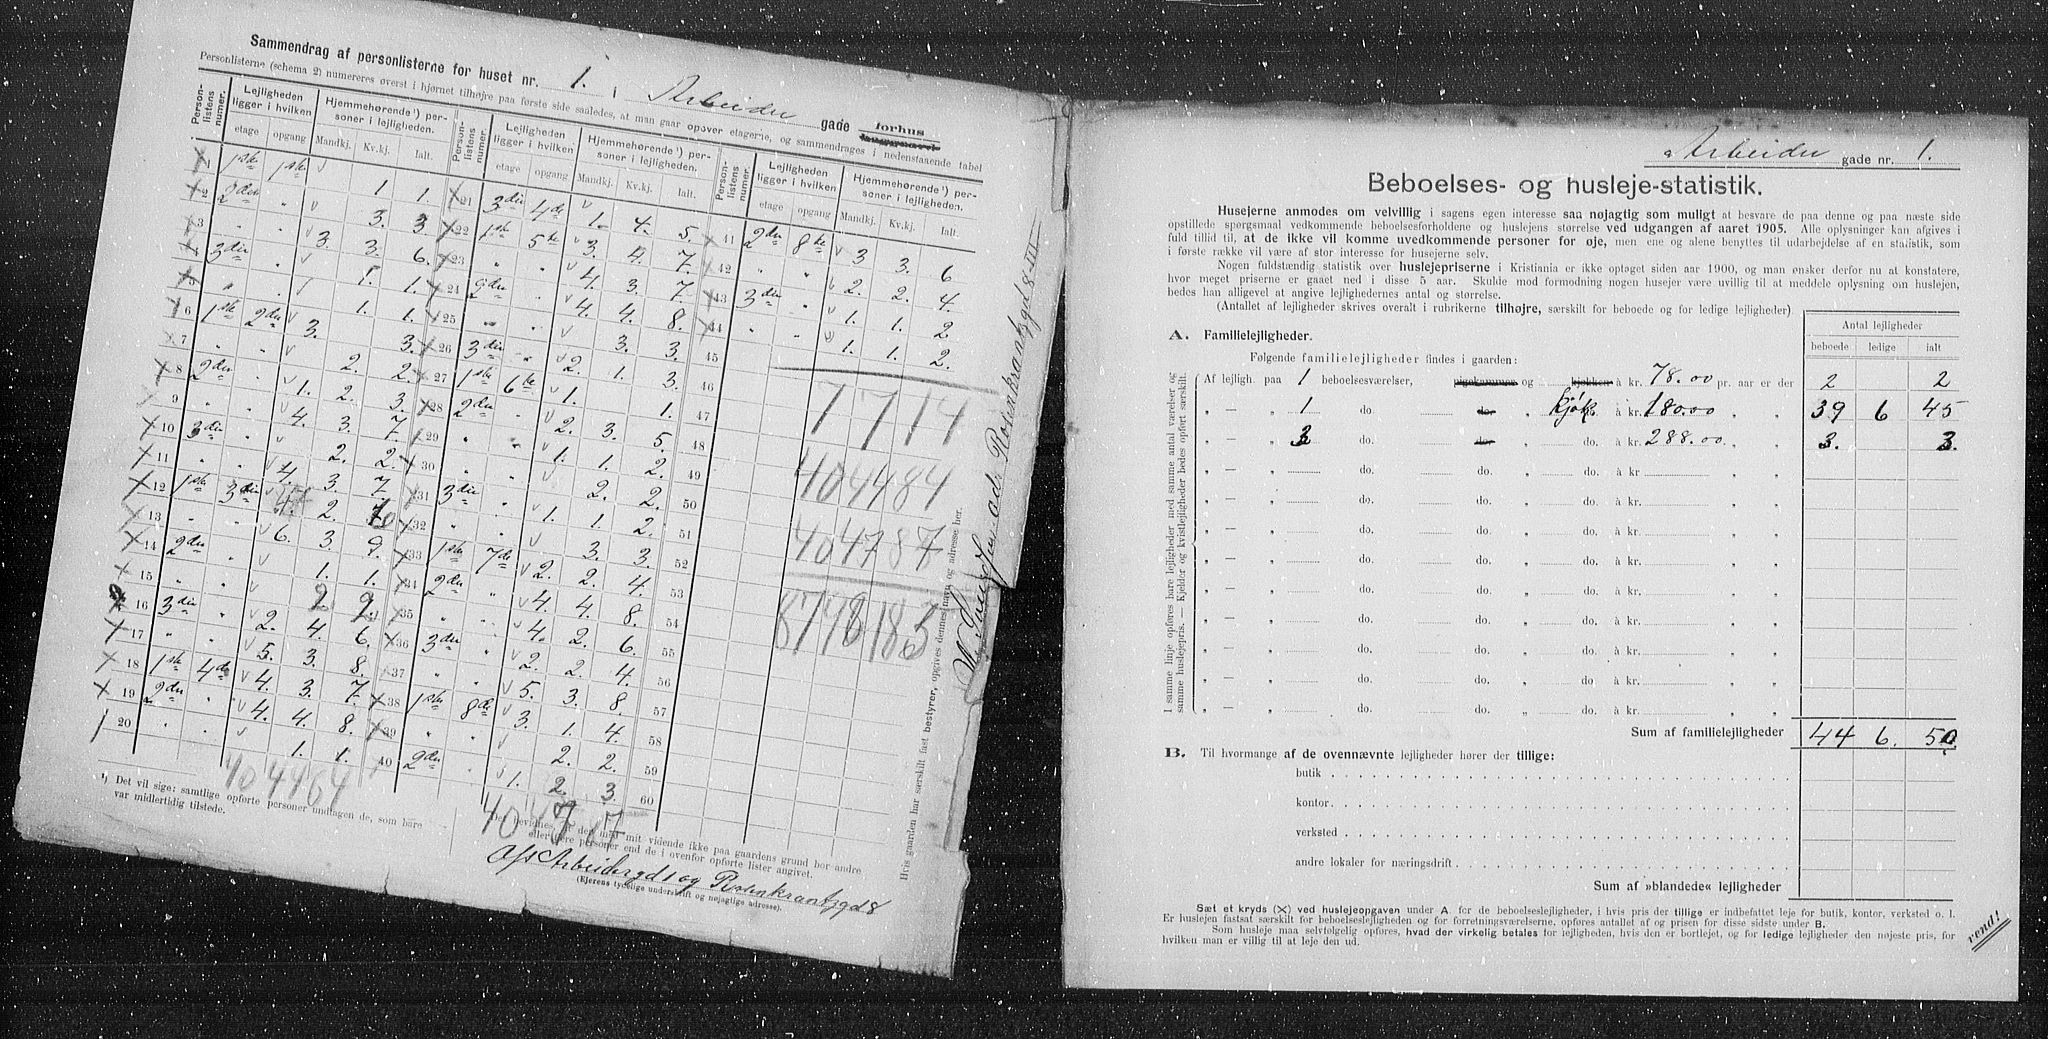 Sammendrag af personlisterne for huset nr. 1. i Arbeider gade forhus
Personlisterne (schema 2) numereres øverst i hjørnet tilhøjre paa første side saaledes, at man gaar opover etagerne, og sammendrages i nedenstaaende tabel
Personlistens numer. Lejligheden ligger i hvilken etage opgang Hjemmehørende¹) personer i lejligheden. Mandkj. Kv.kj. Ialt.
1 1ste 1ste 1 1.
2 2den „ 3. 3
3 „ „ 3. 3. 6.
4 3die „ 1. 1.
5 „ „ 1. 1.
6 1ste 2den 3. 3.
7 „ „ 2. 2.
8 2den „ 1. 2. 3.
9 „ „ 4. 3. 7.
10 3die „ 2. 2.
11 „ „ 4. 3. 7
12 1ste 3die 2.
13 „ „ 6. 3. 9.
14 2den „ 1. 1.
15 „ „ 2 2.
16 3die „ 2. 4. 6.
17 „ „ 5. 3. 8.
18 1ste 4de 4. 3. 7.
19 2den „ 4. 4. 8.
20 „ 1. 1.
21 3die 4de 1. 4. 5.
22 1ste 5te 3. 4. 7.
23 „ „ 4. 3. 7.
24 2den „ 4. 4. 8.
25 „ „ 3. 3.
26 3die „ 2. 1. 3.
27 1ste 6te 1. 1.
28 2den „ 2. 3. 5.
29 „ „ 1. 1. 2.
30 „ 2. 2.
31 3die „ 1. 1. 2.
32 „ „ 3. 3.
33 1ste 7de 2. 2. 4.
34 2den „ 4. 4. 8.
35 „ „ 4. 2. 6.
36 3die „ 2. 2. 4.
37 „ „ 5. 3. 8.
38 1ste 8de 3. 1. 4.
39 „ „ 2. 2.
40 2den 1. 2. 3.
41 2den 8de 3 3. 6
42 „ „ 2. 2. 4.
43 3die „ 1. 1. 2
44 „ „ 1. 1. 2.
45
46
47
48
49
50
51
52
53
54
55
56
57
58
59
60
7 7 14
40 44 84
40 47 87
87 98 185
40 44 84
40 47 87
¹) Det vil sige: samtlige opførte personer undtagen de, som bare var midlertidig tilstede.
Det bevidnes, at der med mit vidende ikke paa gaardens grund bor andre eller flere personer end de i ovenfor opførte lister angivet.
A/S Arbeidergd 1 og Rosenkrantzgd 8
(Ejerens tydelige underskrift og nøjagtige adresse).
Hvis gaarden har særskilt fast bestyrer, opgives dennes navn og adresse her.
ad. Rosenkrantzgd 8 III
Arbeider gade nr. 1.
Beboelses- og husleje-statistik.
Husejerne anmodes om velvillig i sagens egen interesse saa nøjagtig som muligt at besvare de paa denne og paa næste side
opstillede spørgsmaal vedkommende beboelsesforholdene og huslejens størrelse ved udgangen af aaret 1905. Alle oplysninger kan afgives i
fuld tillid til, at de ikke vil komme uvedkommende personer for øje, men ene og alene benyttes til udarbejdelse af en statistik, som
i første række vil være af stor interesse for husejerne selv.
Nogen fuldstændig statistik over huslejepriserne i Kristiania er ikke optaget siden aar 1900, og man ønsker derfor nu at konstatere,
hvor meget priserne er gaaet ned i disse 5 aar. Skulde mod formodning nogen husejer være uvillig til at meddele oplysning om huslejen,
bedes han alligevel at angive lejlighedernes antal og størrelse.
(Antallet af lejligheder skrives overalt i rubrikerne tilhøjre, særskilt for beboede og for ledige lejligheder)
Antal lejligheder
beboede ledige ialt
A. Familielejligheder.
Følgende familielejligheder findes i gaarden:
Af lejligh. paa 1 beboelsesværelser, pigekammer og kjøkken à kr. 78.00 pr. aar er der 2 2
„ — „ 1 do. do. „ kjøk. à kr. 180.00 „ „ 39 6 45
„ — „ 3 do. do. „ do. à kr. 288.00 „ „ 3. 3.
„ — „ do. do. „ do. à kr. „ „
„ — „ do. do. „ do. à kr. „ „
„ — „ do. do. „ do. à kr. „ „
„ — „ do. do. „ do. à kr. „ „
„ — „ do. do. „ do. à kr. „ „
„ — „ do. do. „ do. à kr. „ „
„ — „ do. do. „ do. à kr. „ „
„ — „ do. do. „ do. à kr. „ „
„ — „ do. do. „ do. à kr. „ „
I samme linje opføres bare lejligheder med samme antal værelser og
samme huslejepris. — Kjelder og kvistlejligheder bedes opført særskilt.
Sum af familielejligheder 44 6. 50
B. Til hvormange af de ovennævnte lejligheder hører der tillige:
butik
kontor
verksted
andre lokaler for næringsdrift
Sum af »blandede« lejligheder
Sæt et kryds (X) ved huslejeopgaven under A for de beboelseslejligheder, i hvis pris der tillige er indbefattet leje for butik, kontor, verksted o. l.
Er huslejen fastsat særskilt for beboelseslejligheden og for forretningsværelserne, opføres antallet af og prisen for disse sidste under B.
Som husleje maa selvfølgelig opføres, hvad der virkelig betales for lejligheden, hvis den er bortlejet, og for ledige lejligheder den nøjeste pris, for
hvilken man er villig til at leje den ud.
vend!